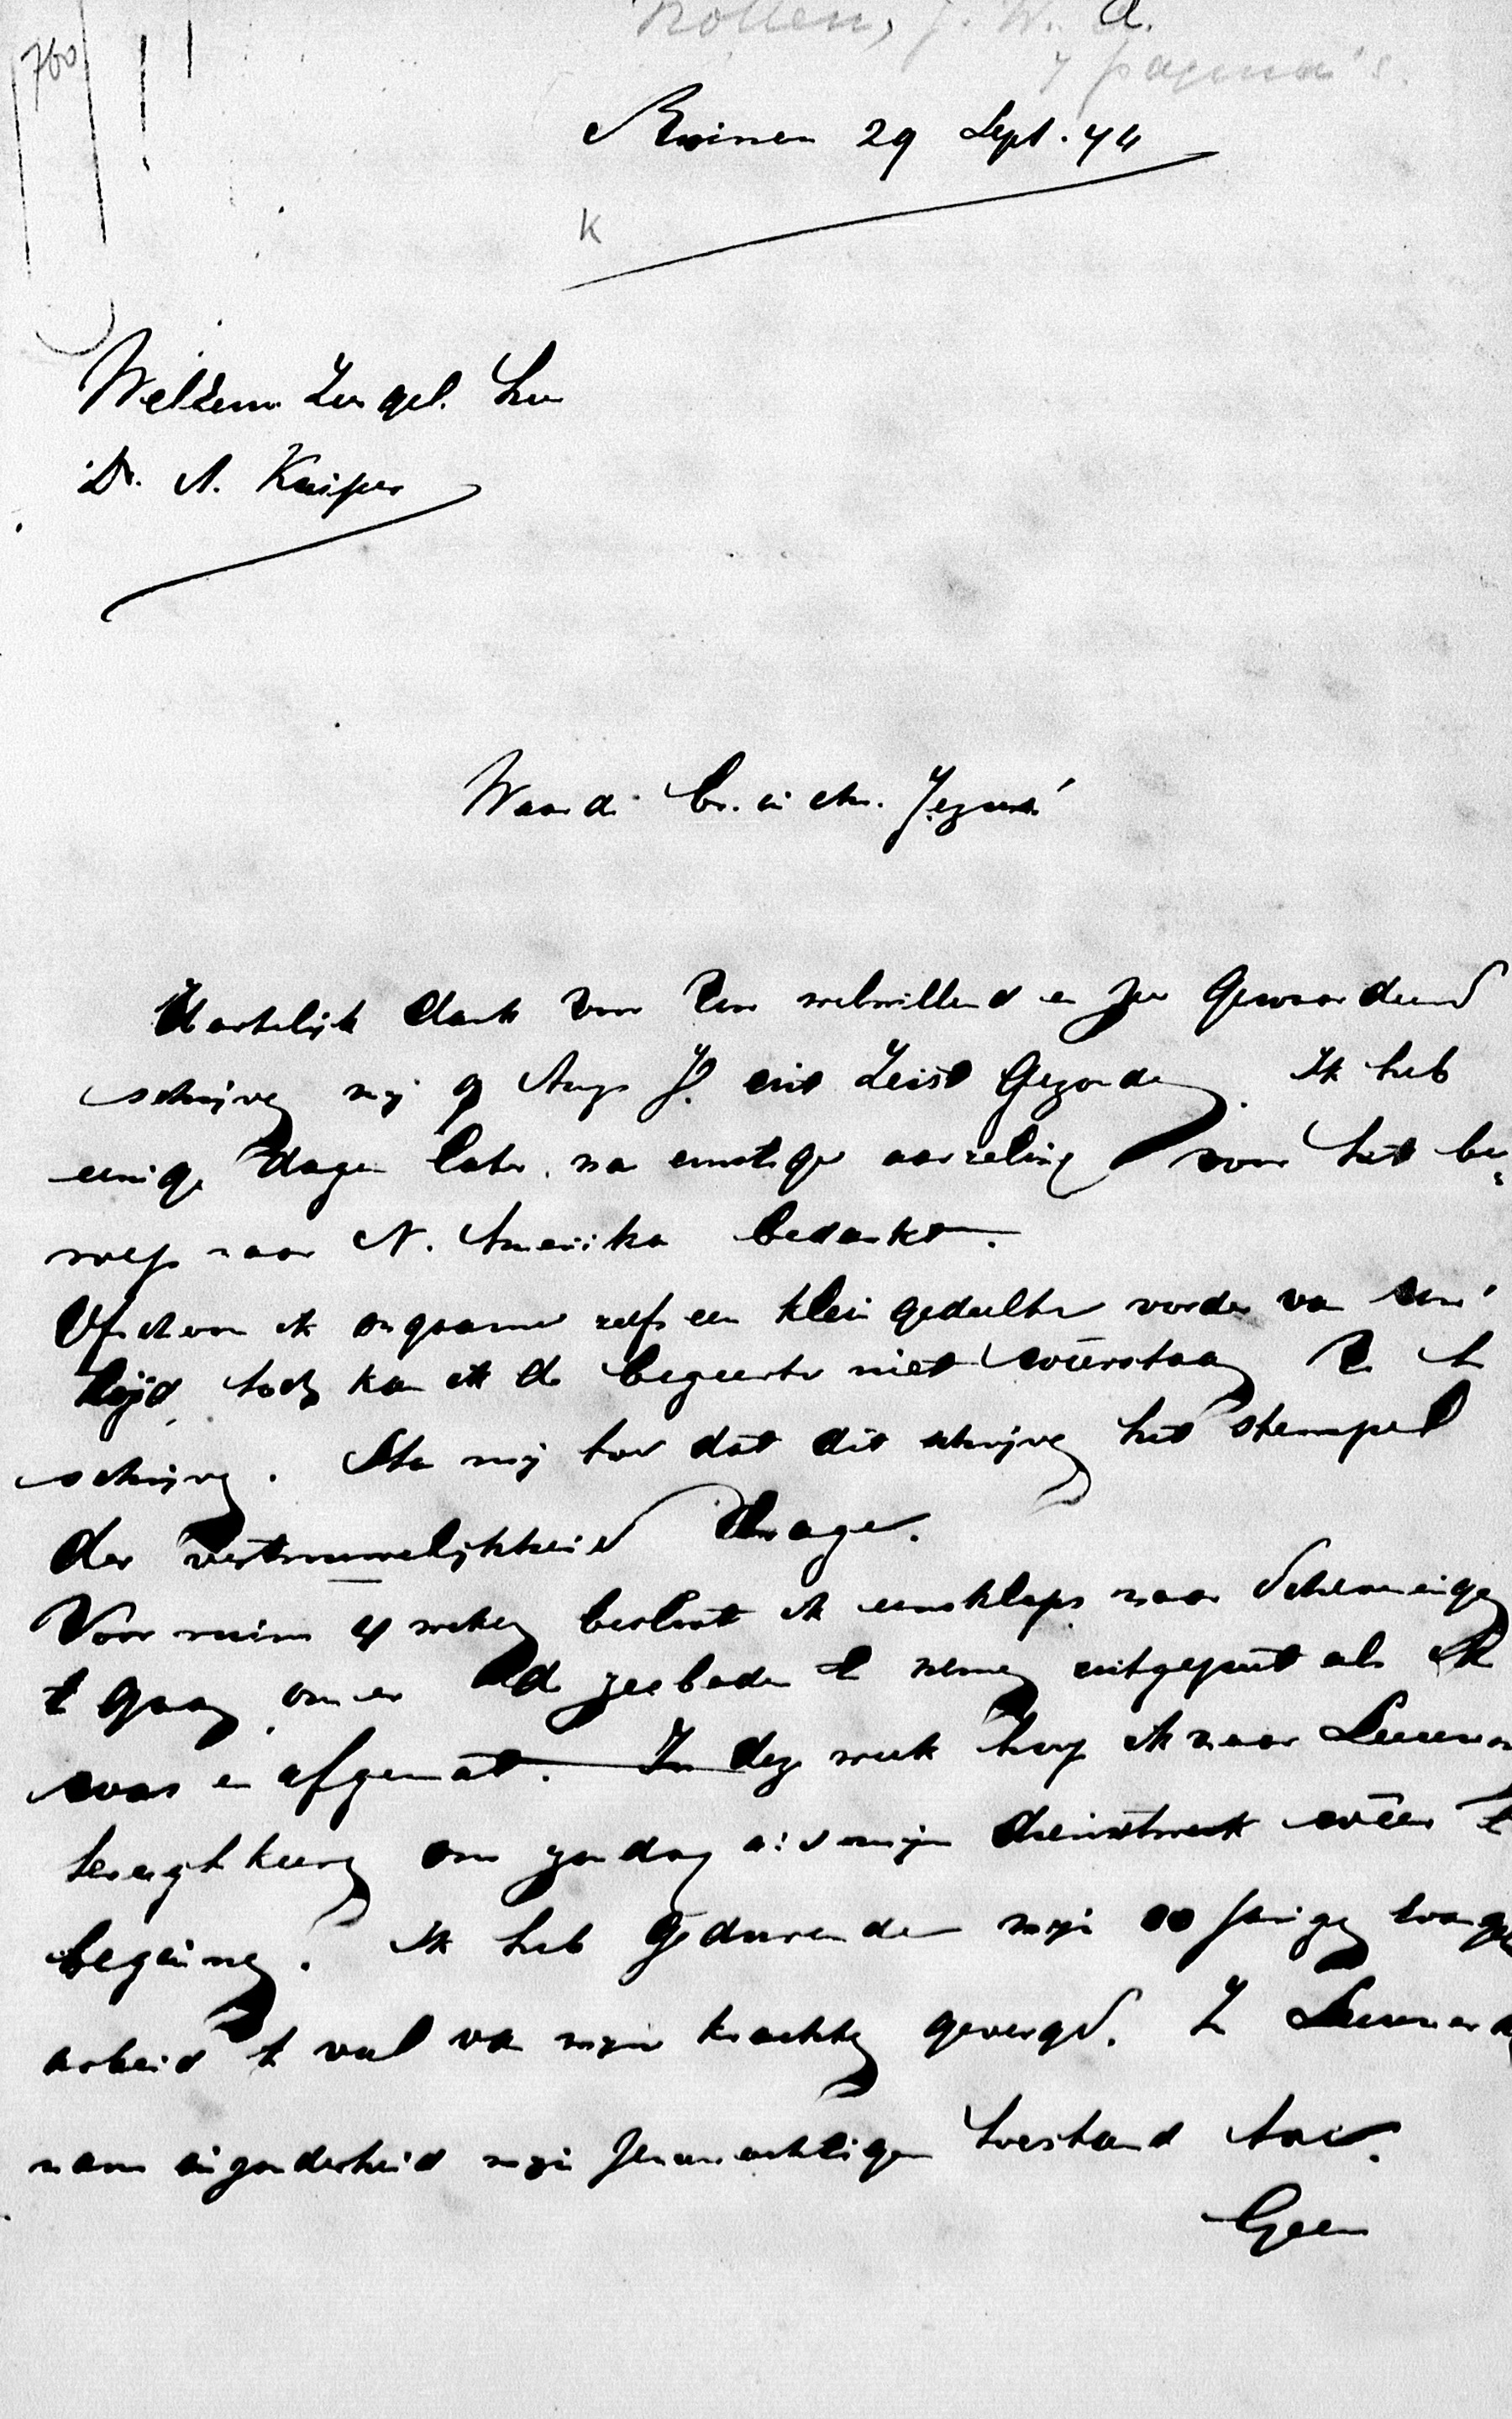 760
Notten, J. W. A.
4 pagina's.
29 Sept. 74
K
WelEerw. Zer gel. Heer
Dr. A. Kuiper
Waarde br. in Chr. Jezus!
Hartelijk dank voor Uw welwillend en zeer gewaardeerd
schrijven mij Aug. jl. uit Zeist gezonden. Ik heb
eenige dagen later, na ernstige aarzeling voor het be-
roep naar N. Amerika bedankt.
Ofschoon ik ongaarne zelfs een klein gedeelte vorder van Uw
tijd, toch kan ik de begeerte niet weêrstaan U te
schrijven. Sta mij toe dat dit schrijven het stempel
der vertrouwelijkheid drage.
Voor ruim weken besloot ik eensklaps naar Scheveningen
te gaan, om er de zeebaden te nemen, uitgeput als ik
was en afgemat. In deze week hoop ik naar Leeuwarden
terugtekeeren om zondag mijn dienstwerk wêer te
beginnen. Ik heb gedurende mijn jarigen
arbeid te veel van mijne krachten gevergd. Te Leeuwarden
nam inzonderheid mijn zenuwachtigen toestand toe.
Geen